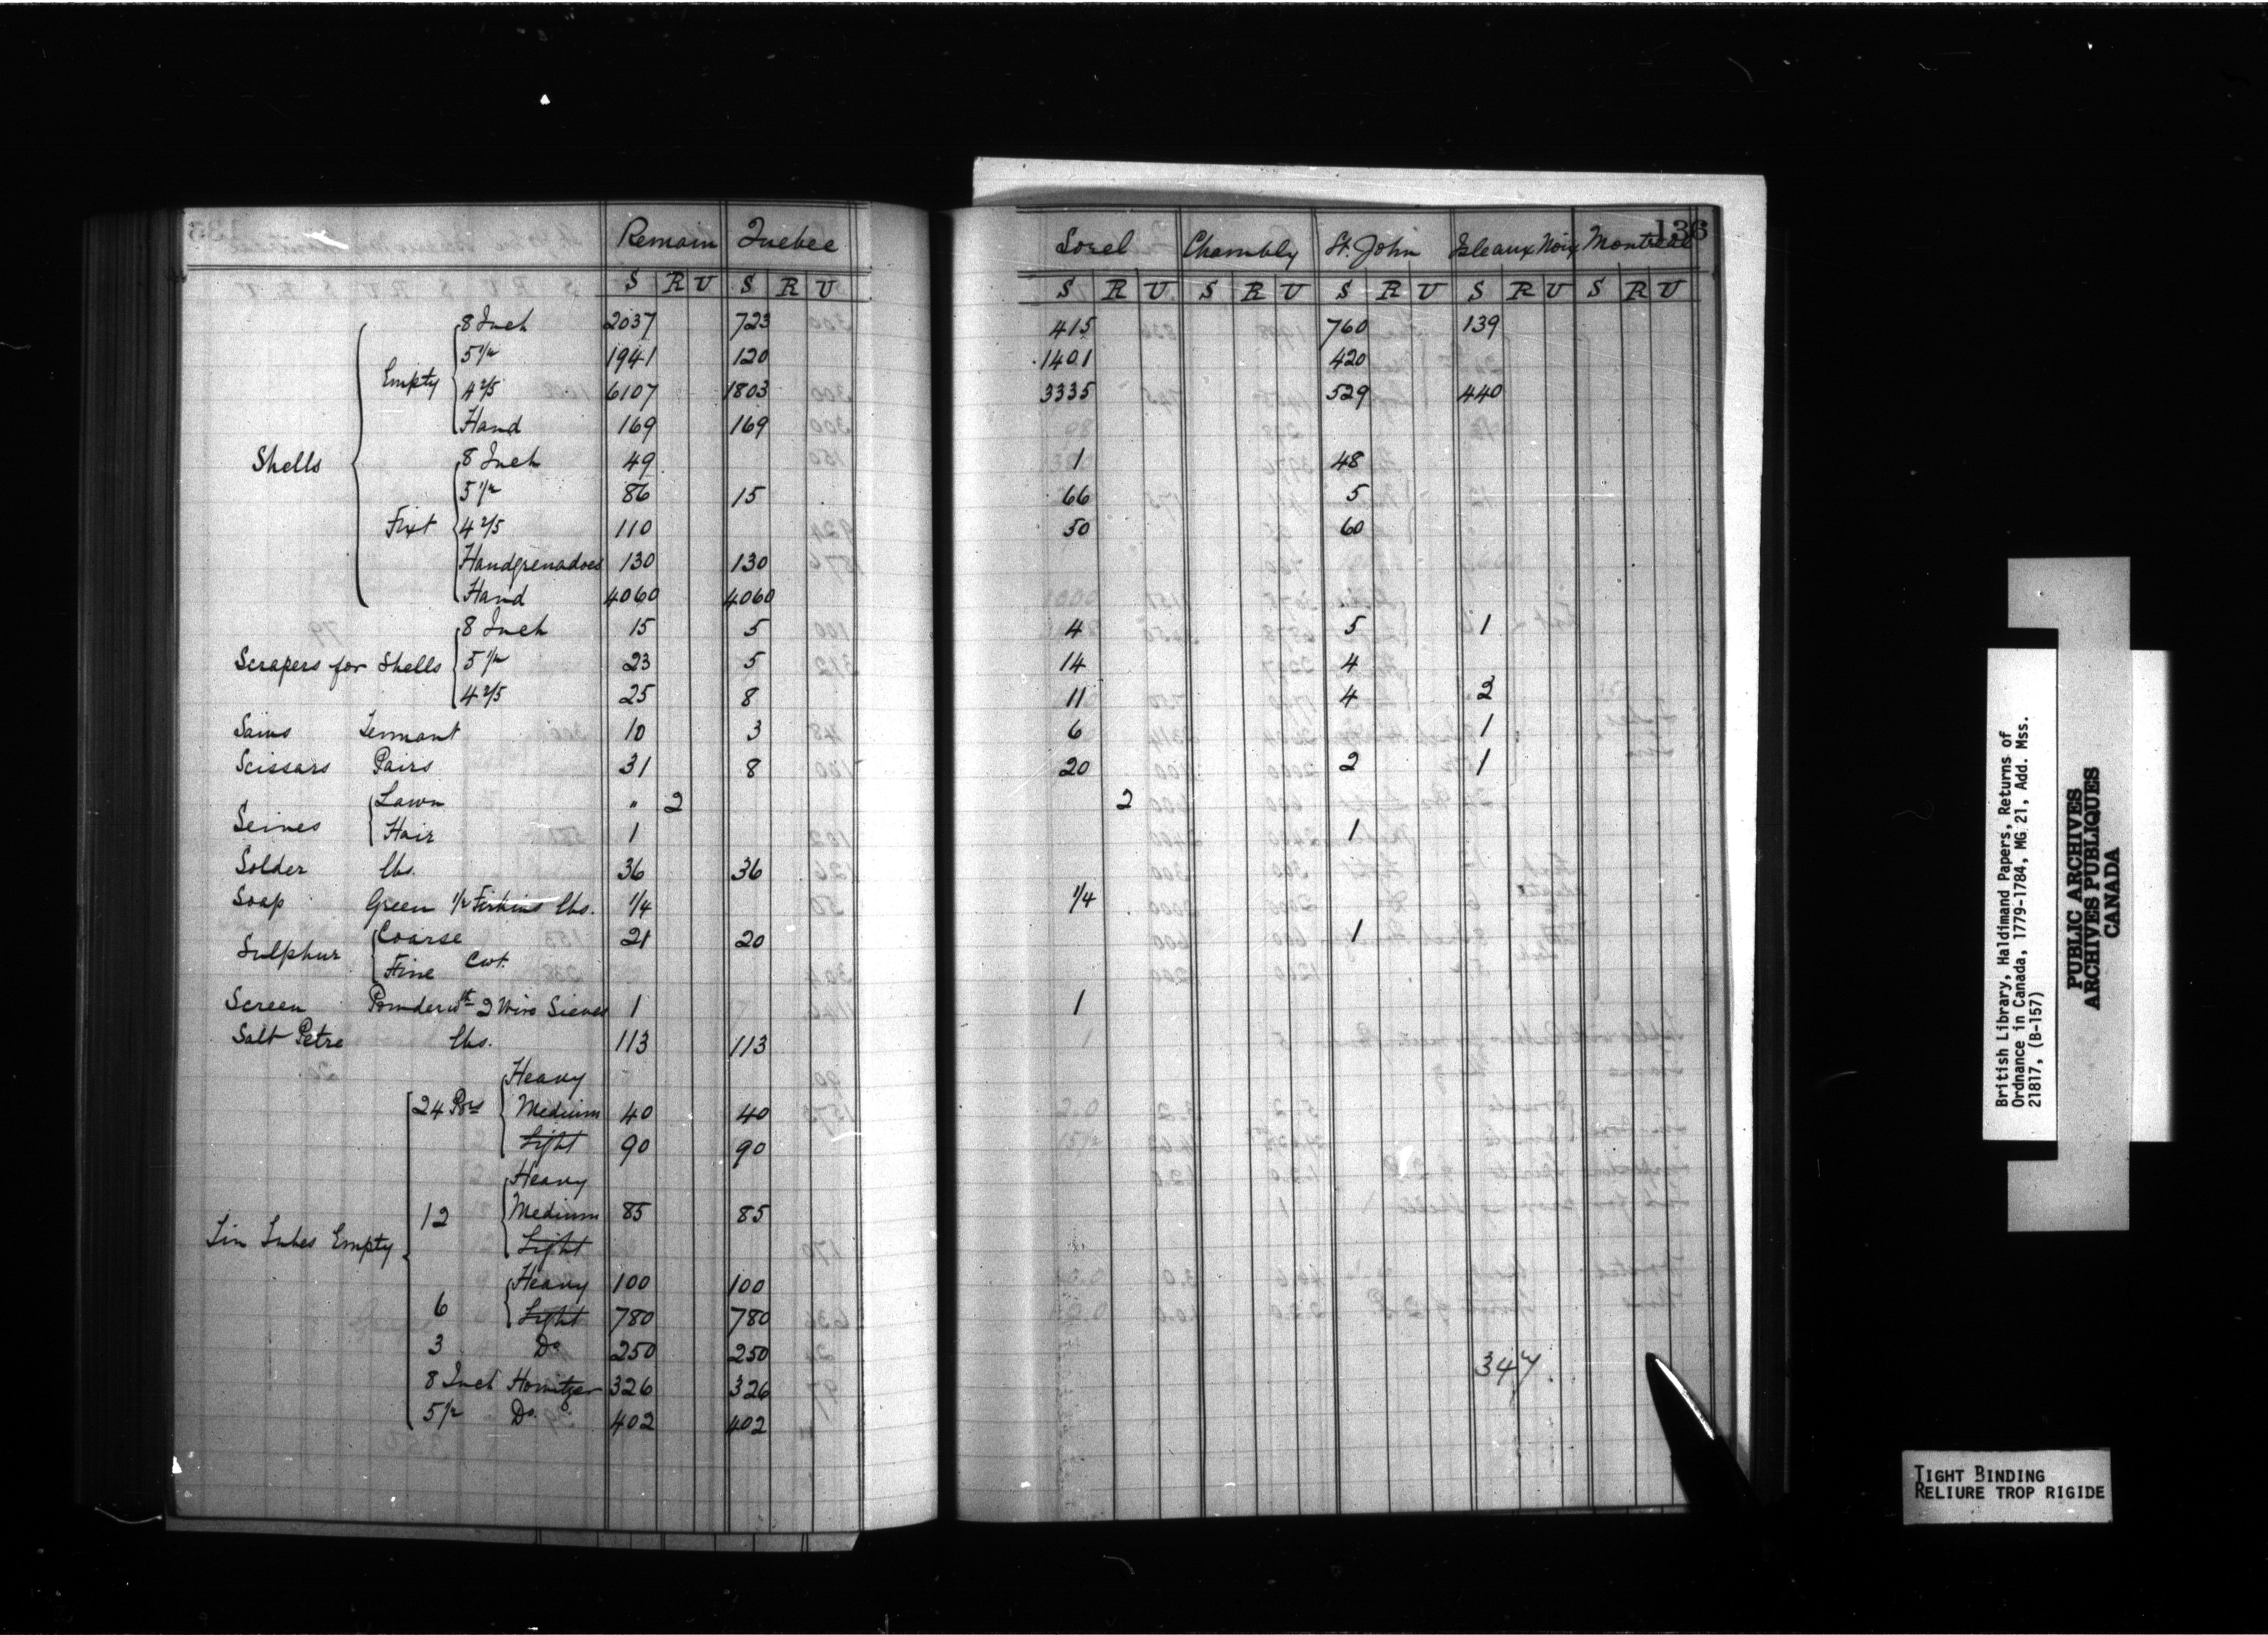 136
Remain Quebec Sorel Chambly St. John Isleaux Noix Montreal
S R U S R U S R U S R U S R U S R U S R U
Shells Empty 8 Inch 2037 723 415 760 139
5 1/2 1941 120 1401 420
4 2/5 6107 1803 3335 529 440
Hand 169 169
Fixt 8 Inch 49 1 48
5 1/2 86 15 66 5
4 2/5 110 50 60
Handgrenadoes 130 130
Hand 4060 4060
Scrapers for Shells 8 Inch 15 5 4 5 1
5 1/2 23 5 14 4
4 2/5 25 8 11 4 2
Saws Tennant 10 3 6 1
Scissars Pairs 31 8 20 2 1
Seives Lawn " 2 2
Hair 1 1
Solder lbs. 36 36
Soap Green 1/2 Firkins lbs. 1/4 1/4
Sulphur Coarse 21 20 1
Fine Cwt.
Screen Powder wth 2 Wire Sieves 1 1
Salt Petre lbs. 113 113
Tin Tubes Empty 24 Prs Heavy
Medium 40 40
Light 90 90
12 Heavy
Medium 85 85
Light
6 Heavy 100 100
Light 780 780
3 Do 250 250
8 Inch Howitzer 326 326
5 1/2 Do. 402 402
347.
British Library, Haldimand Papers, Returns of
Ordnance in Canada, 1779-1784, MG 21, Add. Mss.
21817, (B-157)
PUBLIC ARCHIVES
ARCHIVES PUBLIQUES
CANADA
TIGHT BINDING
RELIURE TROP RIGIDE